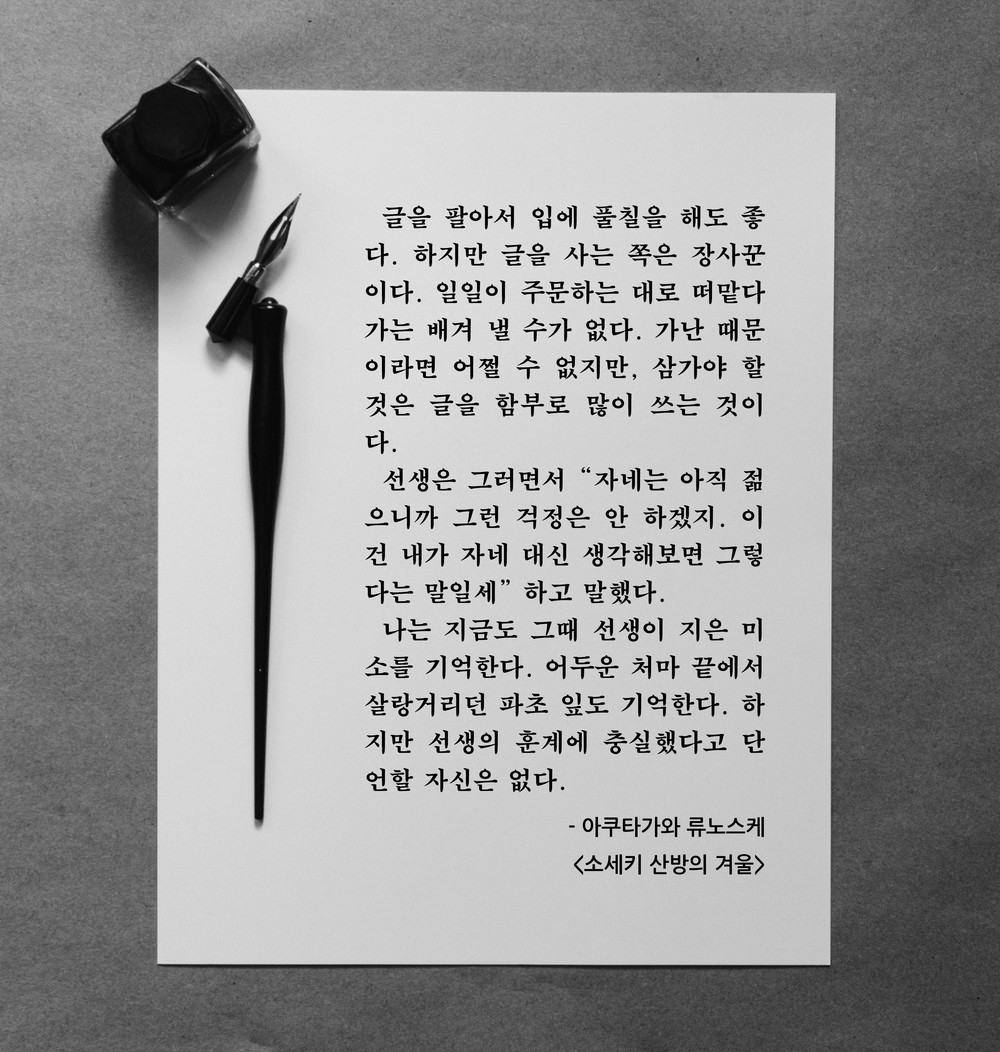 글을 팔아서 입에 풀칠을 해도 좋
다. 하지만 글을 사는 쪽은 장사꾼
이다. 일일이 주문하는 대로 떠맡다
가는 배겨 낼 수가 없다. 가난 때문
이라면 어쩔 수 없지만, 삼가야 할
것은 글을 함부로 많이 쓰는 것이
다.
선생은 그러면서 “자네는 아직 젊
으니까 그런 걱정은 안 하겠지. 이
건 내가 자네 대신 생각해보면 그렇
다는 말일세” 하고 말했다.
나는 지금도 그때 선생이 지은 미
소를 기억한다. 어두운 처마 끝에서
살랑거리던 파초 잎도 기억한다. 하
지만 선생의 훈계에 충실했다고 단
언할 자신은 없다.
- 아쿠타가와 류노스케
<소세키 산방의 겨울>